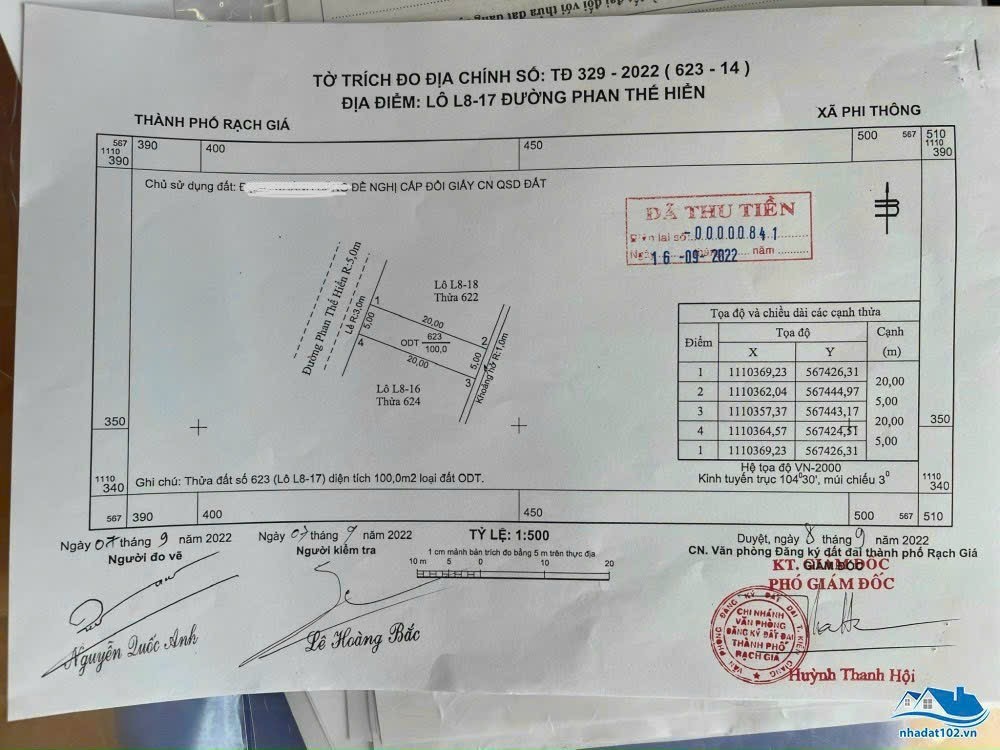 TỜ TRÍCH ĐO ĐỊA CHÍNH SỐ: TĐ 329 - 2022 ( 623 - 14 )
ĐỊA ĐIỂM: LÔ L8-17 ĐƯỜNG PHAN THẾ HIỂN
THÀNH PHỐ RẠCH GIÁ
XÃ PHI THÔNG
567 390 400 450 500 567 510
1110 1110
390 390
Chủ sử dụng đất: ĐỀ NGHỊ CẤP ĐỔI GIẤY CN QSD ĐẤT
ĐÃ THU TIỀN
Biên lai số -0000841
Ngày 16 -09- 2022 năm
B
Đường Phan Thế Hiển R:5,0m
Lề R:3,0m
Lô L8-18
Thửa 622
1
20,00
5,00
2
4
ODT 623
100,0
5,00
20,00
3
Khoảng hở R:1,0m
Lô L8-16
Thửa 624
Tọa độ và chiều dài các cạnh thửa
Điểm Tọa độ Cạnh
X Y (m)
1 1110369,23 567426,31
20,00
2 1110362,04 567444,97
5,00
3 1110357,37 567443,17
20,00
4 1110364,57 567424,51
5,00
1 1110369,23 567426,31
Hệ tọa độ VN-2000
Kinh tuyến trục 104°30', múi chiếu 3°
350 350
Ghi chú: Thửa đất số 623 (Lô L8-17) diện tích 100,0m2 loại đất ODT.
1110 1110
340 340
567 390 400 450 500 567 510
Ngày 07 tháng 9 năm 2022
Người đo vẽ
Nguyễn Quốc Anh
Ngày 07 tháng 9 năm 2022
Người kiểm tra
Lê Hoàng Bắc
TỶ LỆ: 1:500
1 cm mảnh bản trích đo bằng 5 m trên thực địa
10 m 5 0 10 20
Duyệt, ngày 8 tháng 9 năm 2022
CN. Văn phòng Đăng ký đất đai thành phố Rạch Giá
GIÁM ĐỐC
KT. GIÁM ĐỐC
PHÓ GIÁM ĐỐC
VĂN PHÒNG ĐĂNG KÝ ĐẤT ĐAI T. KIÊN GIANG
CHI NHÁNH
VĂN PHÒNG
ĐĂNG KÝ ĐẤT ĐAI
THÀNH PHỐ
RẠCH GIÁ
Huỳnh Thanh Hội
nhadat102.vn